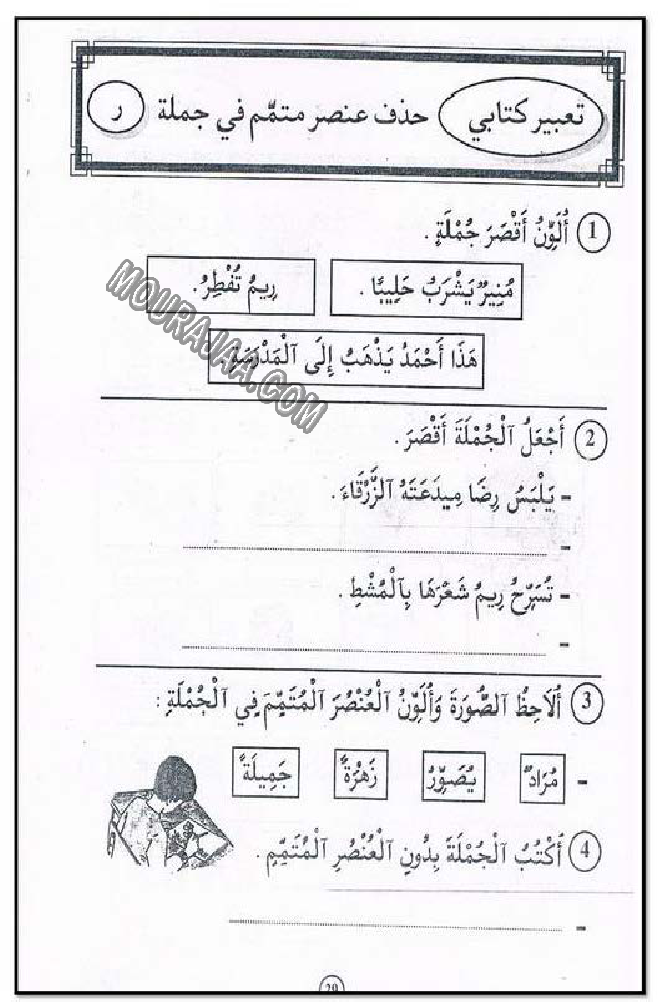 تعبير كتابي حذف عنصر متمّم في جملة ر
1 أُلَوِّنُ أَقْصَرَ جُمْلَةٍ .
مُنِيرٌ يَشْرَبُ حَلِيبًا . رِيمُ تُفْطِرُ .
هَذَا أَحْمَدُ يَذْهَبُ إِلَى ٱلْمَدْرَسَةِ
MOURAJAA.COM
2 أَجْعَلُ ٱلْجُمْلَةَ أَقْصَرَ .
- يَلْبَسُ رِضَا مِيدَعَتَهُ ٱلزَّرْقَاءَ .
-
- تُسَرِّحُ رِيمُ شَعْرَهَا بِٱلْمُشْطِ .
-
3 أُلَاحِظُ ٱلصُّورَةَ وَأُلَوِّنُ ٱلْعُنْصُرَ ٱلْمُتَمِّمَ فِي ٱلْجُمْلَةِ :
- مُرَادٌ يُصَوِّرُ زَهْرَةً جَمِيلَةً
4 أَكْتُبُ ٱلْجُمْلَةَ بِدُونِ ٱلْعُنْصُرِ ٱلْمُتَمِّمِ .
-
29